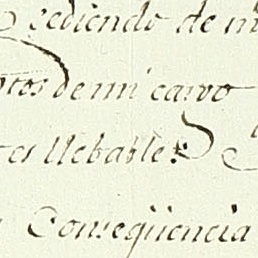 cediendo de m
ptos de mi cargo
es llebables
Conseqüencia